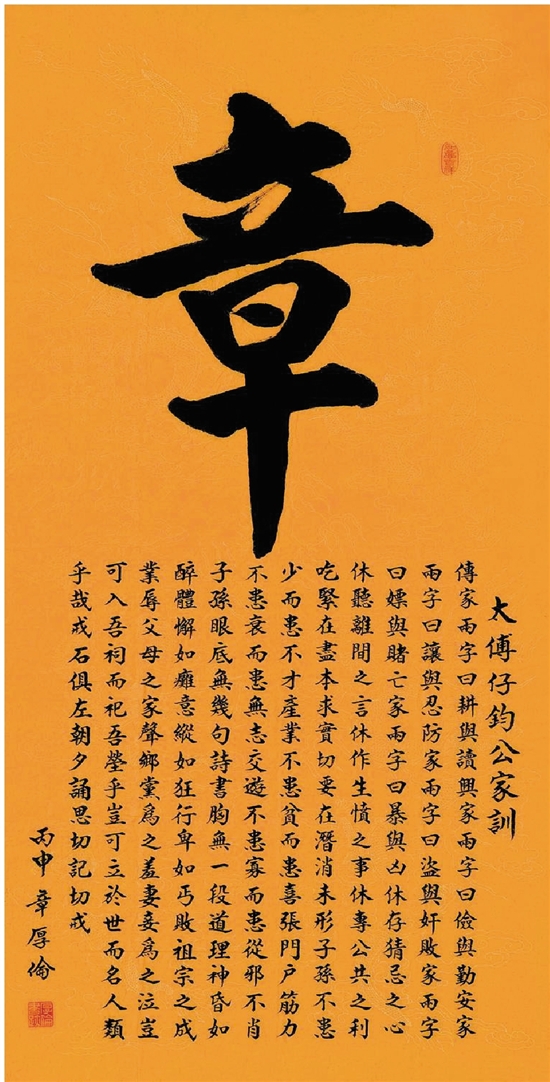 章
太傅仔鈞公家訓
傳家兩字曰耕與讀興家兩字曰儉與勤安家
兩字曰讓與忍防家兩字曰盜與奸敗家兩字
曰嫖與賭亡家兩字曰暴與凶休存猜忌之心
休聽離間之言休作生憤之事休專公共之利
吃緊在盡本求實切要在潛消未形子孫不患
少而患不才產業不患貧而患喜張門户筋力
不患衰而患無志交遊不患寡而患從邪不肖
子孫眼底無幾句詩書胸無一段道理神昏如
醉體懈如癱意縱如狂行卑如丐敗祖宗之成
業辱父母之家聲鄉黨爲之羞妻妾爲之泣豈
可入吾祠而祀吾塋乎豈可立於世而名人類
乎哉戒石俱左朝夕誦思切記切戒
丙申 章厚倫